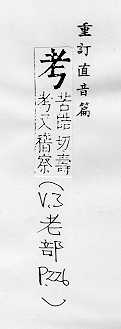 重訂直音篇
考
苦皓切壽
考又稽察
(V.3老部P.226)